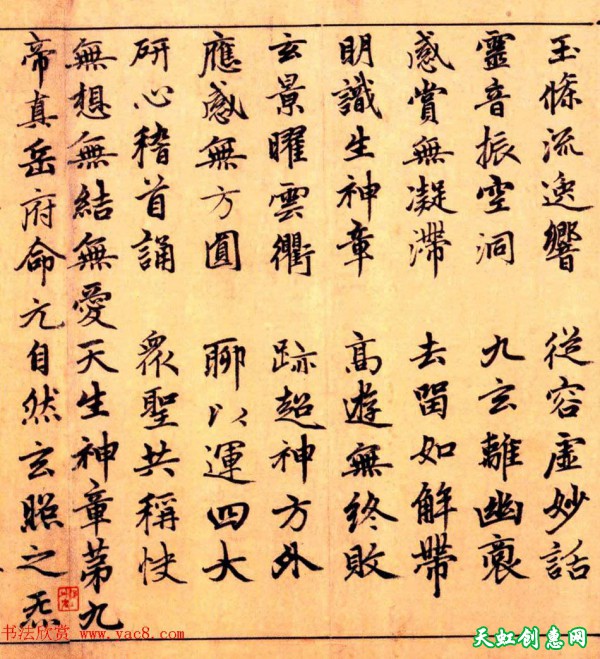 玉條流逸響 從容虛妙話
靈音振空洞 九玄離幽裔
感賞無凝滯 去留如解帶
明識生神章 高遊無終敗
玄景曜雲衢 跡超神方外
應感無方圓 聊以運四大
研心稽首誦 眾聖共稱快
無想無結無愛天生神章第九
帝真岳府命元自然玄照之炁
书法欣赏 www.yac8.com
天虹创惠网